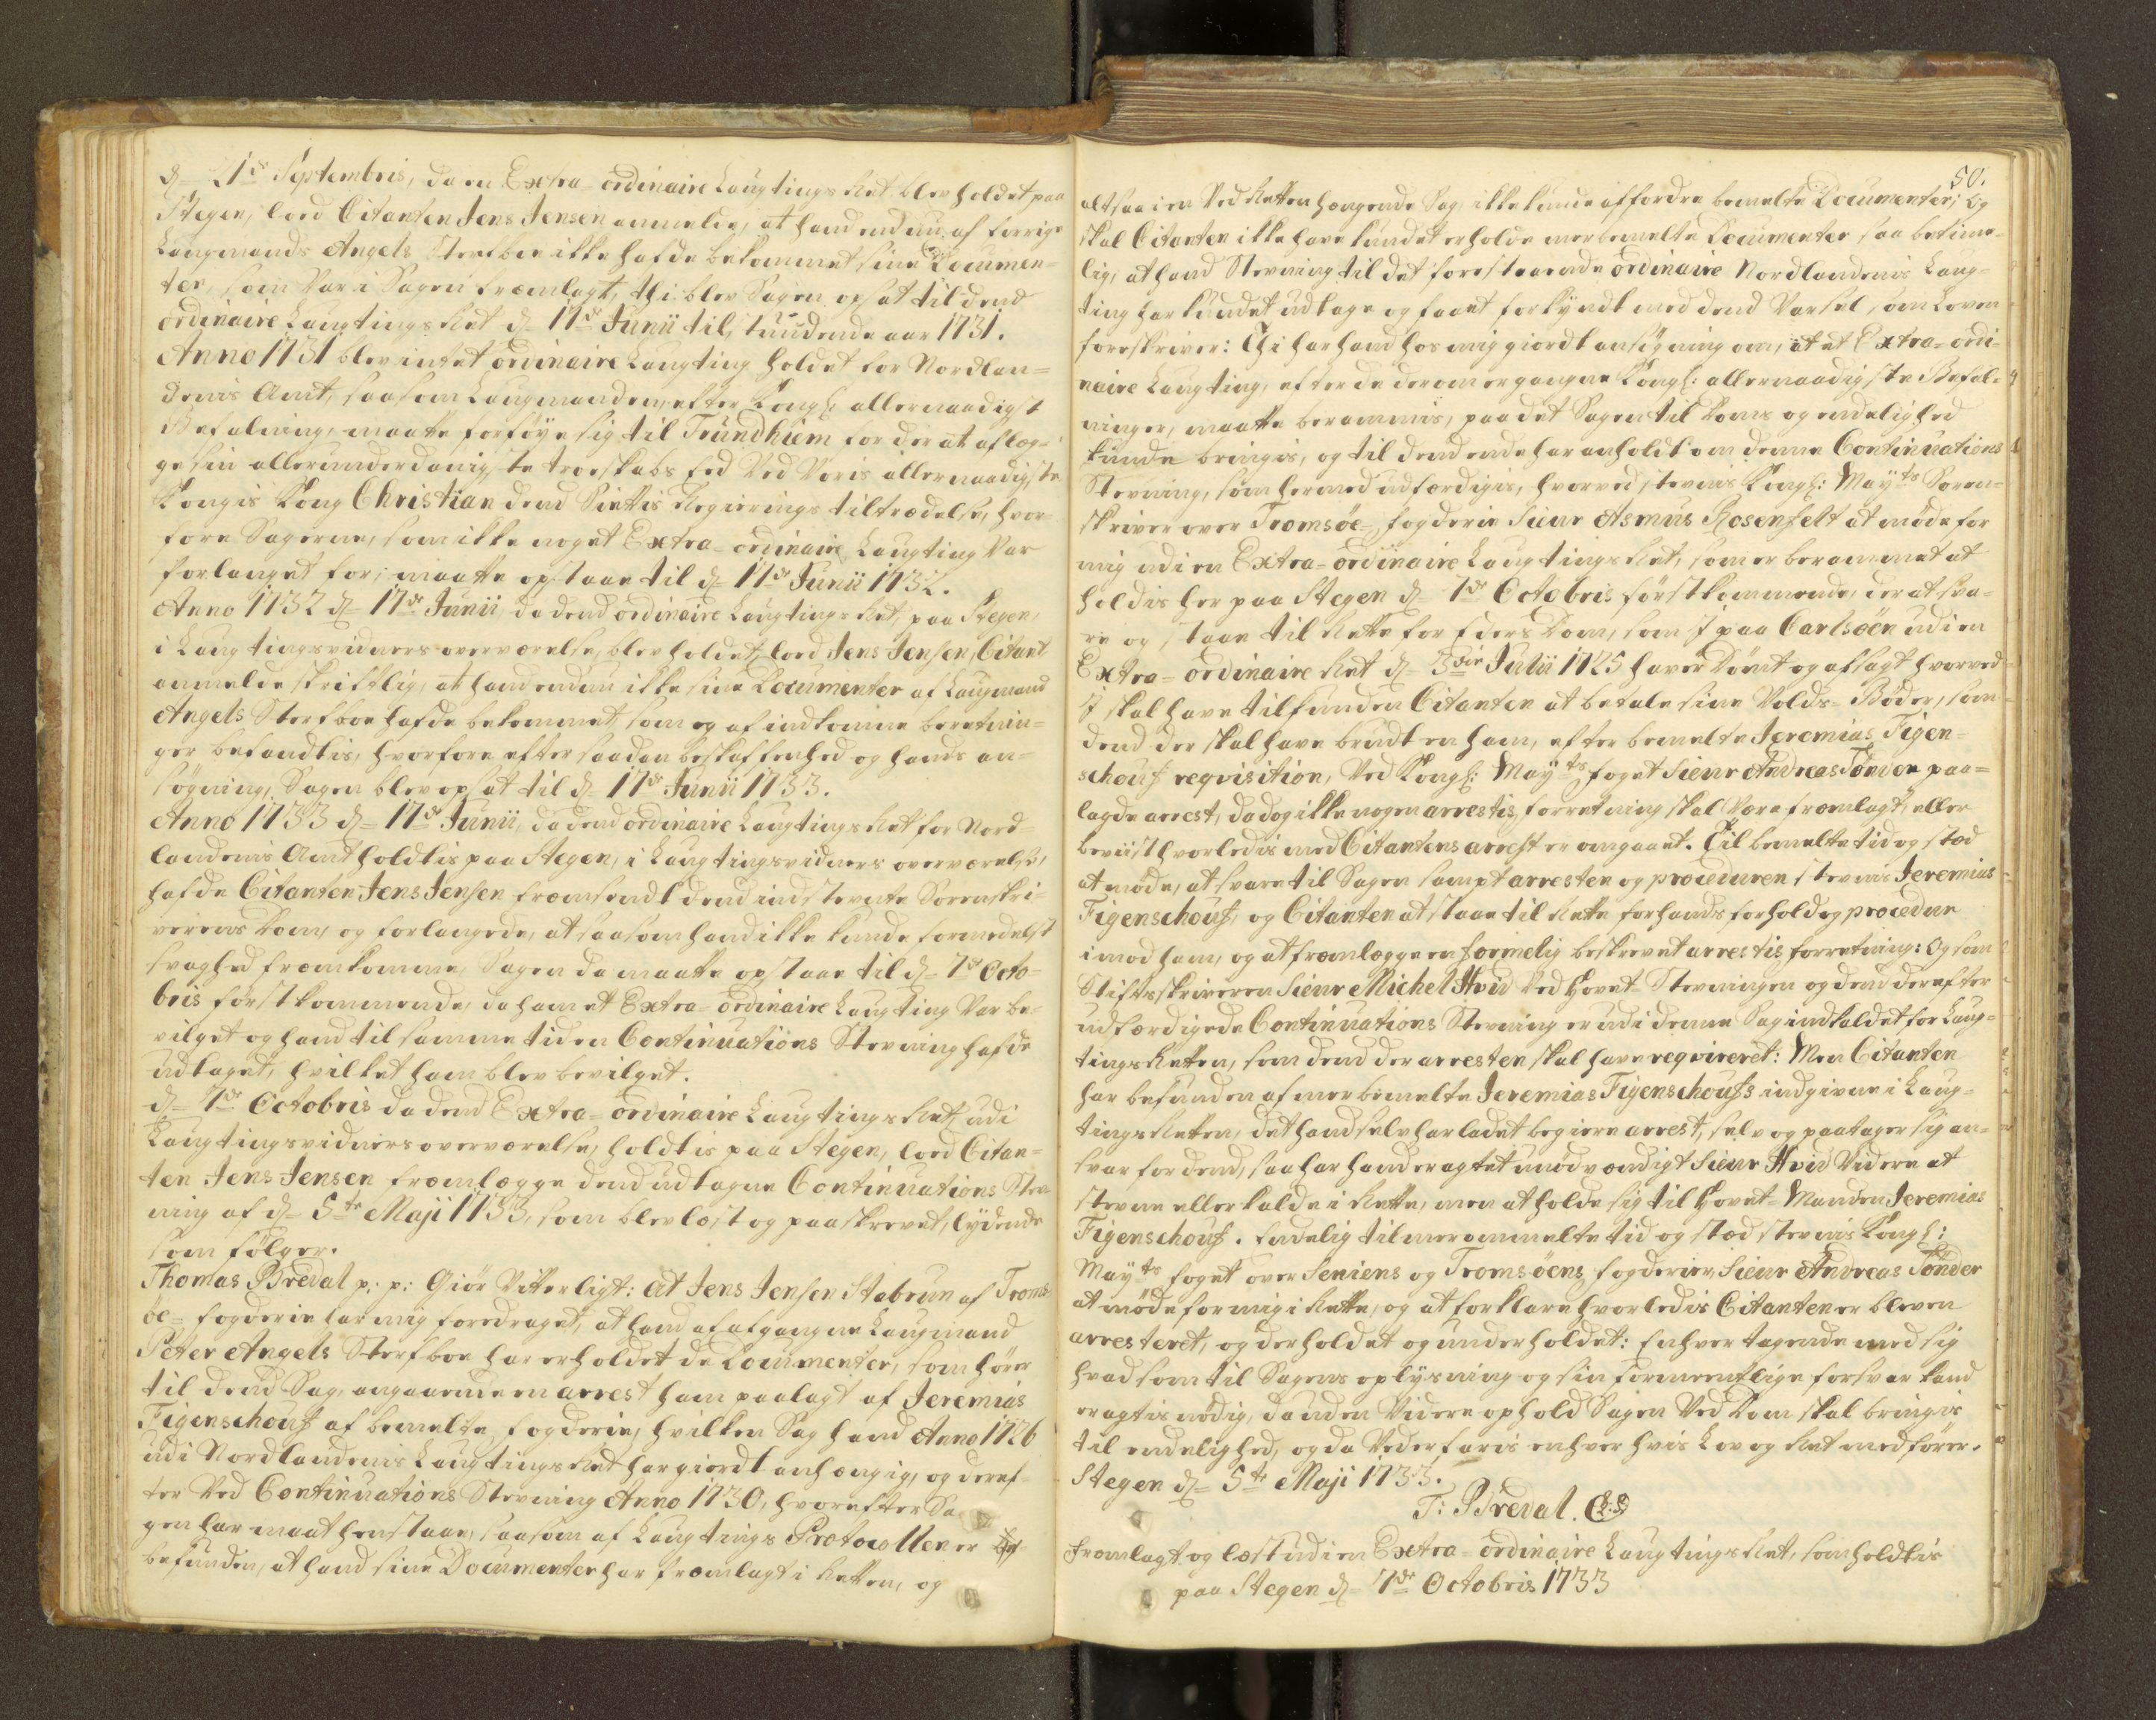 d= 21de Septembris, da en Extra-ordinaire Laugtings Ret blev holdet paa
Stegen, loed Citanten Jens Jensen anmelde, at hand endnu af forrige
Laugmands Angels Sterfboe ikke hafde bekommet sine Documen=
ter, som Var i Sagen fremlagt, thi blev Sagen opsat til dend
ordinaire Laugtings Ret d= 17de Junii til, tuudende aar 1731.
Anno 1731 blev intet ordinaire Laugting holdet for Nordlan=
denis Amt, saasom Laugmanden, efter Kongl: allernaadigst
Befalning, maatte forføye sig til Trundhiem for der at aflæg=
ge sin allerunderdanigste troeskabs Eed Ved Voris allernaadigste
Kongis Kong Christian dend Siettis Regierings tiltrædelse, hvor=
fore Sagerne, som ikke noget Extra-ordinaire Laugting Var
forlanget for, maatte opstaae til d= 17de Junii 1732.
Anno 1732 d= 17de Junii, da dend ordinaire Laugtings Ret, paa Stegen,
i Laugtingsvidners overværelse, blev holdet, loed Jens Jensen, Citant
anmelde skriftlig, at hand endnu ikke sine Documenter af Laugmand
Angels Sterfboe hafde bekommet, som og af indkomne beretnin=
ger befandtis, hvorfore efter saadan beskaffenhed og hands an=
søgning, Sagen blev opsat til d= 17de Junii 1733.
Anno 1733 d= 17de Junii, da dend ordinaire Laugtings Ret for Nord=
landenis Amt holdtis paa Stegen, i Laugtingsvidners overværelse,
hafde Citanten Jens Jensen fremsendt dend indstevnte Sorenskri=
verens Dom, og forlangede, at saasom hand ikke kunde formedelst
svaghed fremkomme, Sagen da maatte opstaae til d= 7de Octo=
bris førstkommende, da ham et Extra-ordinaire Laugting Var be=
vilget og hand til samme tid en Continuations Stevning hafde
udtaget, hvilket ham blev bevilget.
d= 7de Octobris da dend Extra-ordinaire Laugtings Ret, udi
Laugtingsvidners overværelse, holdtis paa Stegen, loed Citan=
ten Jens Jensen fremlægge dend udtagne Continuations Stev=
ning af d= 5te Maji 1733, som blev læst og paaskrevet, lydende
som følger.
Thomas Bredal p: p: Giør Vitterligt: At Jens Jensen Stabrun af Troms=
öe= fogderie har mig foredraget, at hand af afgangne Laugmand
Peter Angels Sterfboe har erholdet de Documenter, som hører
til dend Sag, angaaende en arrest ham paalagt af Jeremias
Figenschouß af bemelte fogderie, hvilken Sag hand Anno 1726
udi Nordlandenis Laugtings Ret har giordt anhængig, og deref=
ter Ved Continuations Stevning Anno 1730, hvorefter Sa=
gen har maat henstaae, saasom af Laugtings Protocollen er
befunden, at hand sine Documenter har fremlagt i Retten, og
50.
altsaa i en Ved Retten hængende Sag, ikke kunde affordre bemelte Documenter; Og
skal Citanten ikke have kundet erholde merbemelte Documenter saa betime=
lig, at hand Stevning til det forestaaende ordinaire Nordlandenis Laug=
ting har kundet udtage og faaet forkyndt med dend Varsel, som Loven
foreskriver: Thi har hand hos mig giordt ansøgning om, at et Extra=ordi=
naire Laugting, efter de derom ergangne Kongl: allernaadigste Befal=
ninger, maatte berammis, paa det Sagen til Doms og endelighed
kunde bringis, og til dend ende har anholdt om denne Continuations
Stevning, som hermed udfærdigis, hvorved stevnis Kongl: Mayts Soren=
skriver over Tromsöe= fogderie Sieur Asmus Rosenfelt at møde for
mig udi en Extra-ordinaire Laugtings Ret, som er berammet at
holdis her paa Stegen d= 7de Octobris førstkommende, der at sva=
re og staae til Rette for Eders Dom, som I paa Carlsöen udi en
Extra-ordinaire Ret d= 3die Julii 1725 haver Dömt og afsagt hvorved
I skal have tilfunden Citanten at betale sine Volds=Bøder, som
dend der skal have brudt en ham, efter bemelte Jeremias Figen=
schouß reqvisition, Ved Kongl: Mayts foget Sieur Andreas Tönder paa=
lagde arrest, da dog ikke nogen arrestis forretning skal Være fremlagt, eller
beviist hvorledis med Citantens arrest er omgaaet. Til bemelte tid og stæd
at møde, at svare til Sagen sampt arresten og proceduren stevnis Jeremias
Figenschouß, og Citanten at staae til Rette for hands forhold og procedure
imod ham, og at fremlægge en formelig beskrevet arrestis forretning: Og som
Stiftsskriveren Sieur Michel Hvid Ved Hovet-Stevningen og dend derefter
udfærdigede Continuations Stevning er udi denne Sag indkaldet for Laug=
tings Retten, som dend der arresten skal have reqvireret: Men Citanten
har befunden af merbemelte Jeremias Figenschouß's indgivne i Laug=
tings Retten, det hand selv har ladet begiere arrest, selv og paatager sig an=
svar for dend, saa har hand eragtet unødvændigt Sieur Hvid Videre at
stevne eller kalde i Rette, men at holde sig til Hovet-Manden Jeremias
Figenschouß. Endelig til merommelte tid og stæd stevnis Kongl:
Mayts foget over Seniens og Tromsöens fogderier, Sieur Andreas Tönder
at møde for mig i Rette, og at forklare hvorledis Citanten er bleven
arresteret, og der holdet og underholdet: Enhver tagende med sig
hvad som til Sagens oplysning og sin formeentlige forsvar kand
eragtis nødig, da uden Videre ophold Sagen Ved Dom skal bringis
til endelighed, og da Vederfaris enhver hvis Lov og Ret medfører.
Stegen d= 5te Maji 1733.
T: Bredal. L.S.
Fremlagt og læst udi en Extra-ordinaire Laugtings Ret, som holdtis
paa Stegen d= 7de Octobris 1733